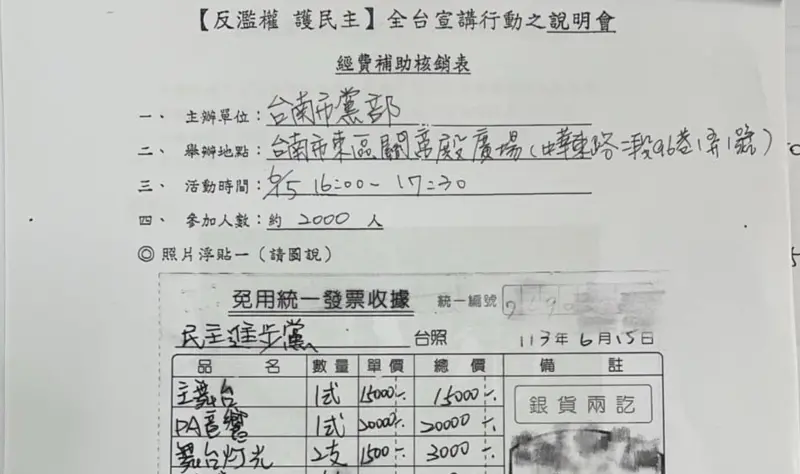 【反濫權 護民主】全台宣講行動之說明會
經費補助核銷表
一、 主辦單位：台南市黨部
二、 舉辦地點：台南市東區關帝殿廣場（中華東路二段96巷1弄1號）
三、 活動時間：6/15 16:00~17:30
四、 參加人數：約 2000 人
◎ 照片浮貼一（請圖說）
免用統一發票收據 統一編號
民主進步黨 台照 113年6月15日
品 名 數量 單價 總 價 備 註
主舞台 1式 15000 15000
PA音響 1式 20000 20000
舞台灯光 2支 1500 3000
銀貨兩訖